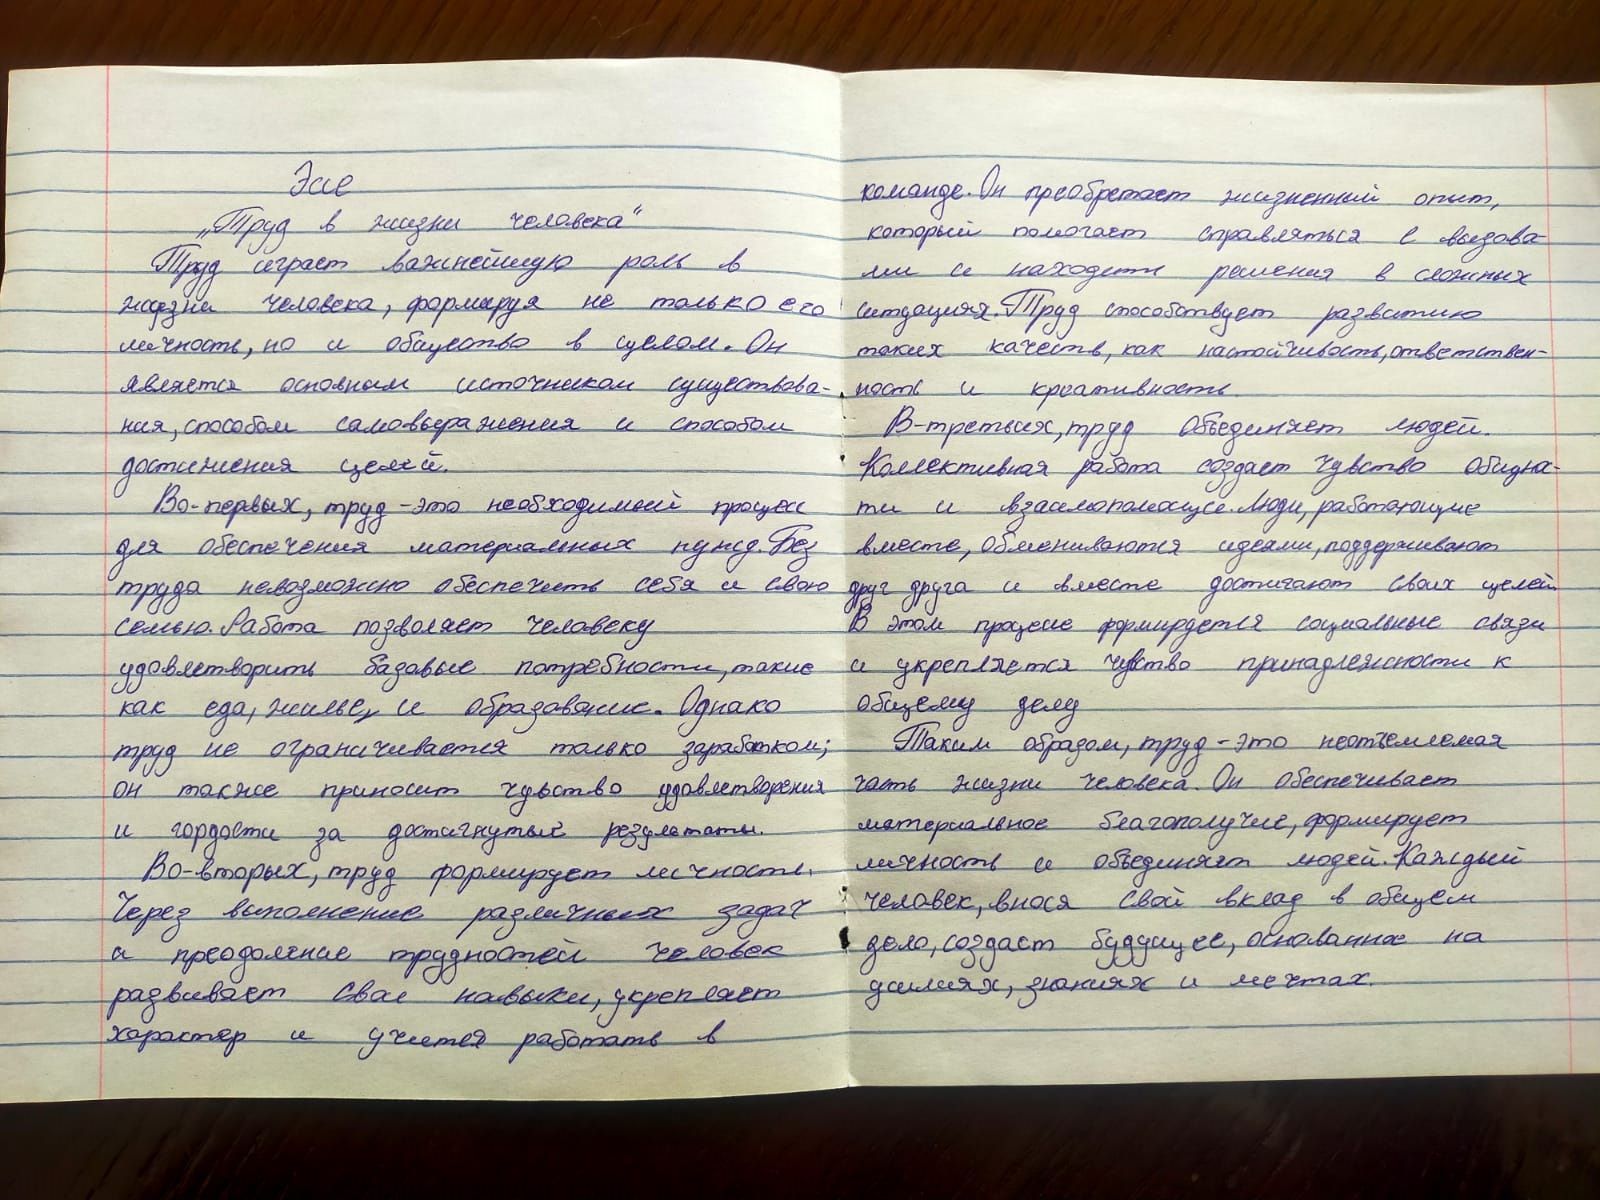 Эссе
„Труд в жизни человека"
Труд играет важнейшую роль в
жизни человека, формируя не только его
личность, но и общество в целом. Он
является основным источником существова-
ния, способом самовыражения и способом
достижения целей.
Во-первых, труд - это необходимый процесс
для обеспечения материальных нужд. Без
труда невозможно обеспечить себя и свою
семью. Работа позволяет человеку
удовлетворить базовые потребности, такие
как еда, жилье, и образование. Однако
труд не ограничивается только заработком;
он также приносит чувство удовлетворения
и гордости за достигнутые результаты.
Во-вторых, труд формирует личность.
Через выполнение различных задач
и преодоление трудностей человек
развивает свои навыки, укрепляет
характер и учится работать в
команде. Он преобретает жизненный опыт,
который помогает справляться с вызова-
ми и находить решения в сложных
ситуациях. Труд способствует развитию
таких качеств, как настойчивость, ответствен-
ность и креативность.
В-третьих, труд объединяет людей.
Коллективная работа создает чувство общно-
ти и взаимопомощи. Люди, работающие
вместе, обмениваются идеями, поддерживают
друг друга и вместе достигают своих целей.
В этом процессе формируется социальные связи
и укрепляется чувство принадлежности к
общему делу
Таким образом, труд - это неотъемлемая
часть жизни человека. Он обеспечивает
материальное благополучие, формирует
личность и объединяет людей. Каждый
человек, внося свой вклад в общем
дело, создает будущее, основанное на
усилиях, знаниях и мечтах.